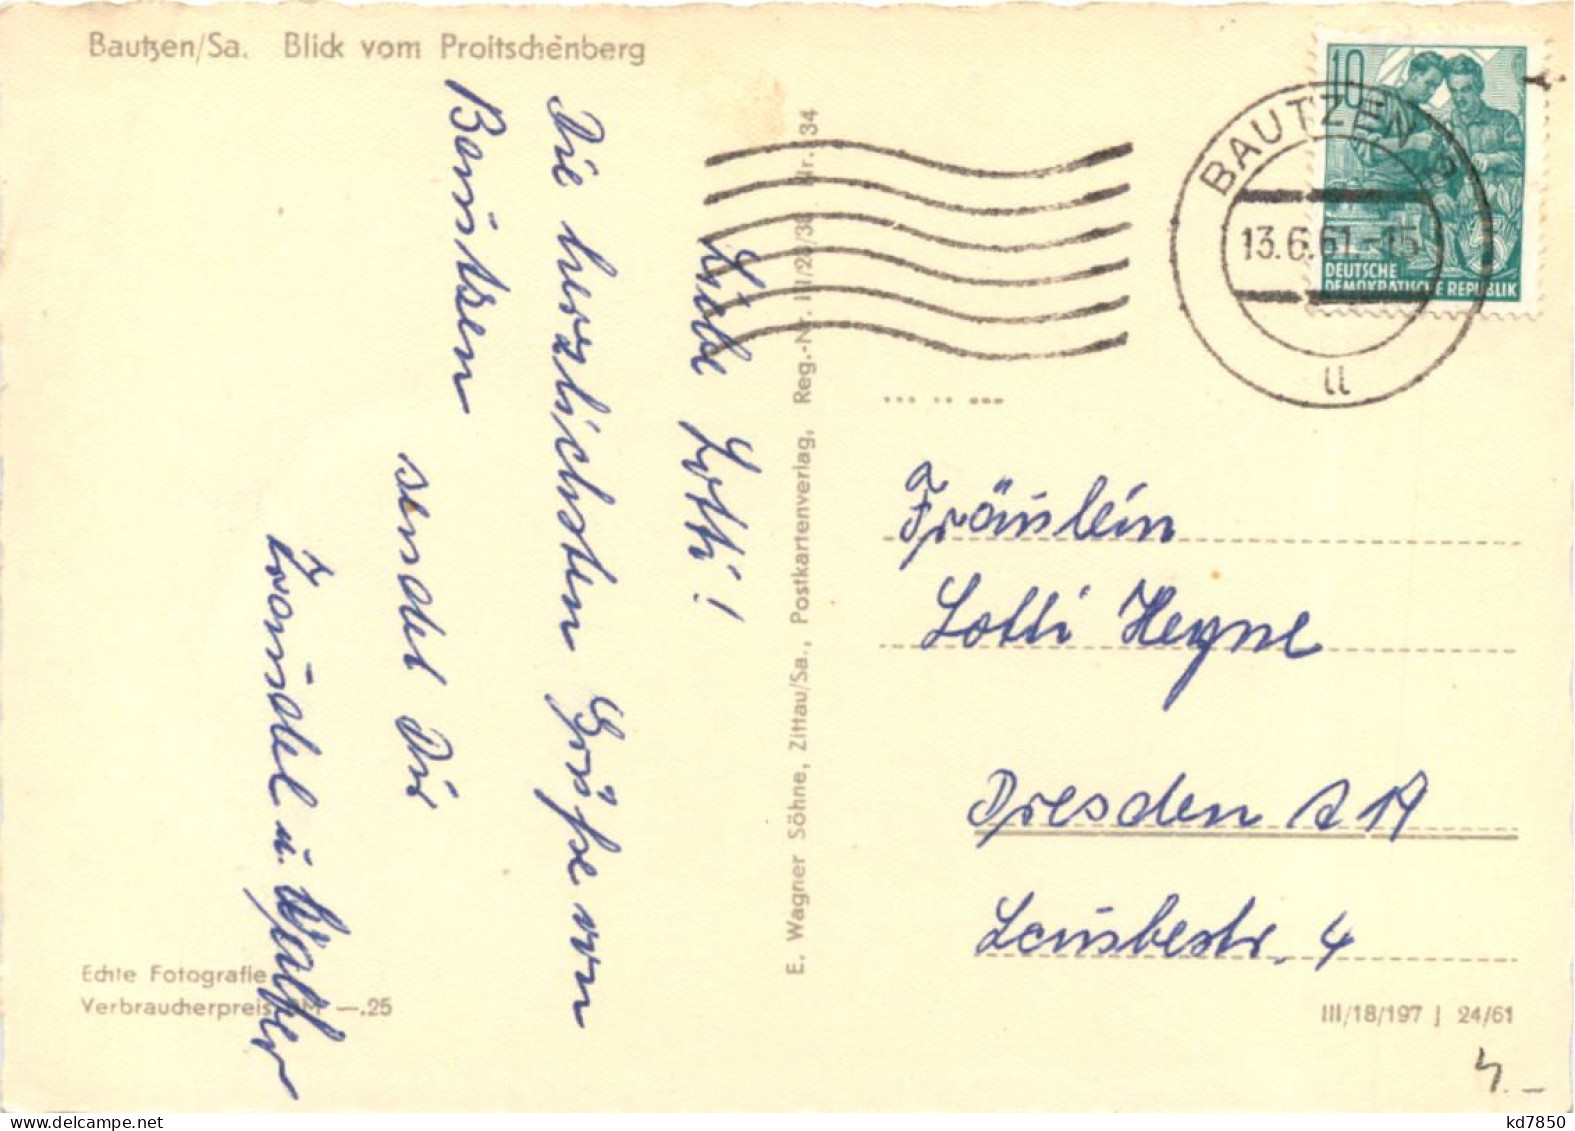 Bautzen/Sa. Blick vom Proitschenberg
10
DEUTSCHE
DEMOKRATISCHE REPUBLIK
BAUTZEN 2
13.6.61.-15
u
Liebe Lotti!
Die herzlichsten Grüße von
Bautzen
sendet Dir
Traudel u. Walter
E. Wagner Söhne, Zittau/Sa., Postkartenverlag, Reg.-Nr. III/28/38 Nr. 34
Fräulein
Lotti Heyne
Dresden A
4
Echte Fotografie
Verbraucherpreis DM —.25
III/18/197 J 24/61
4.-
kd7850